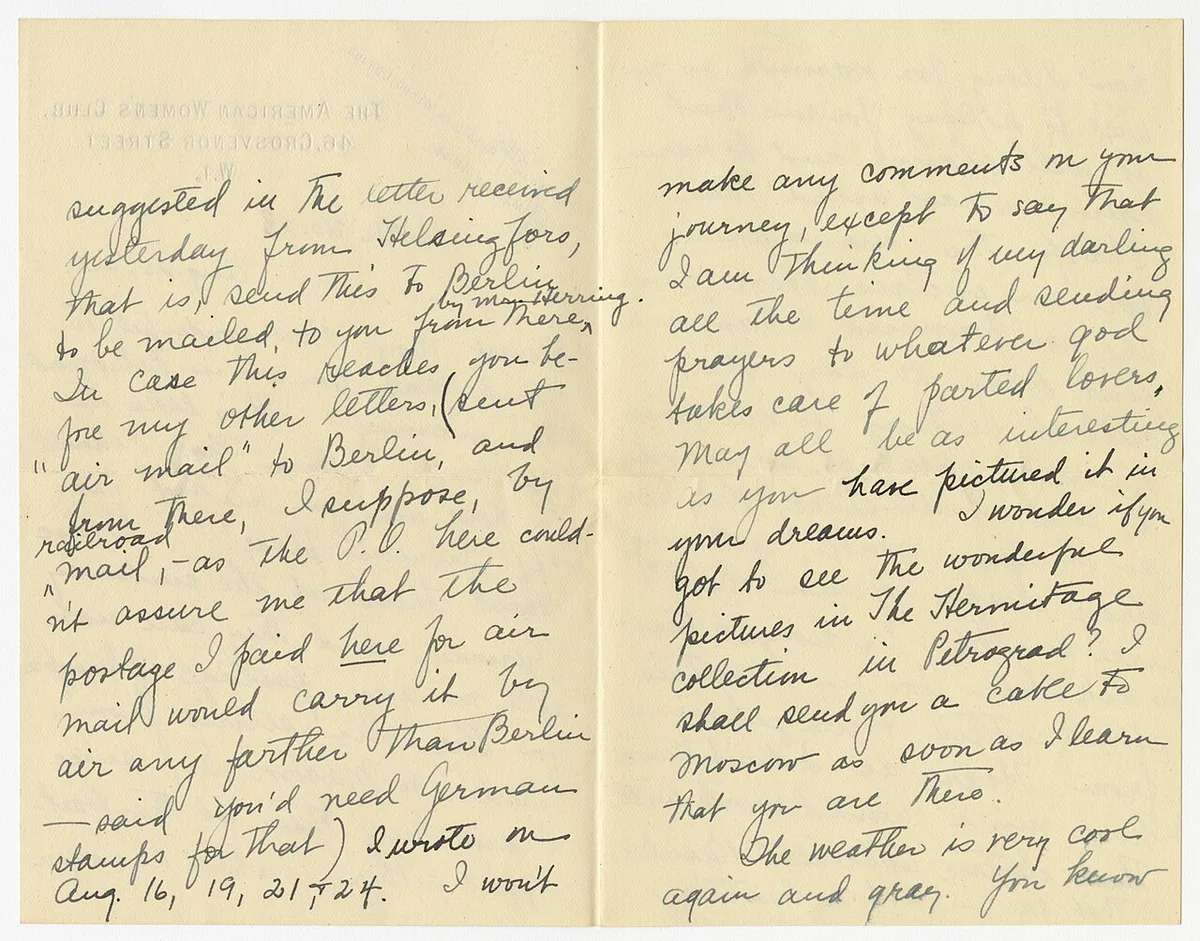 THE AMERICAN WOMEN'S CLUB.
46, GROSVENOR STREET
W.1.
suggested in the letter received
yesterday from Helsingfors,
that is, send this to Berlin
by Mrs Herring.
to be mailed, to you from there,^
In case this reaches you be-
fore my other letters, (sent
"air mail" to Berlin, and
from there, I suppose, by
railroad
"mail,- as the P.O. here could-
n't assure me that the
postage I paid here for air
mail would carry it by
air any farther than Berlin
— said you'd need German
stamps for that) I wrote on
Aug. 16, 19, 21, + 24. I won't
make any comments on your
journey, except to say that
I am thinking of my darling
all the time and sending
prayers to whatever god
takes care of parted lovers.
May all be as interesting
as you have pictured it in
your dreams. I wonder if you
got to see the wonderful
pictures in The Hermitage
collection in Petrograd? I
shall send you a cable to
Moscow as soon as I learn
that you are there.
The weather is very cool
again and gray. You know